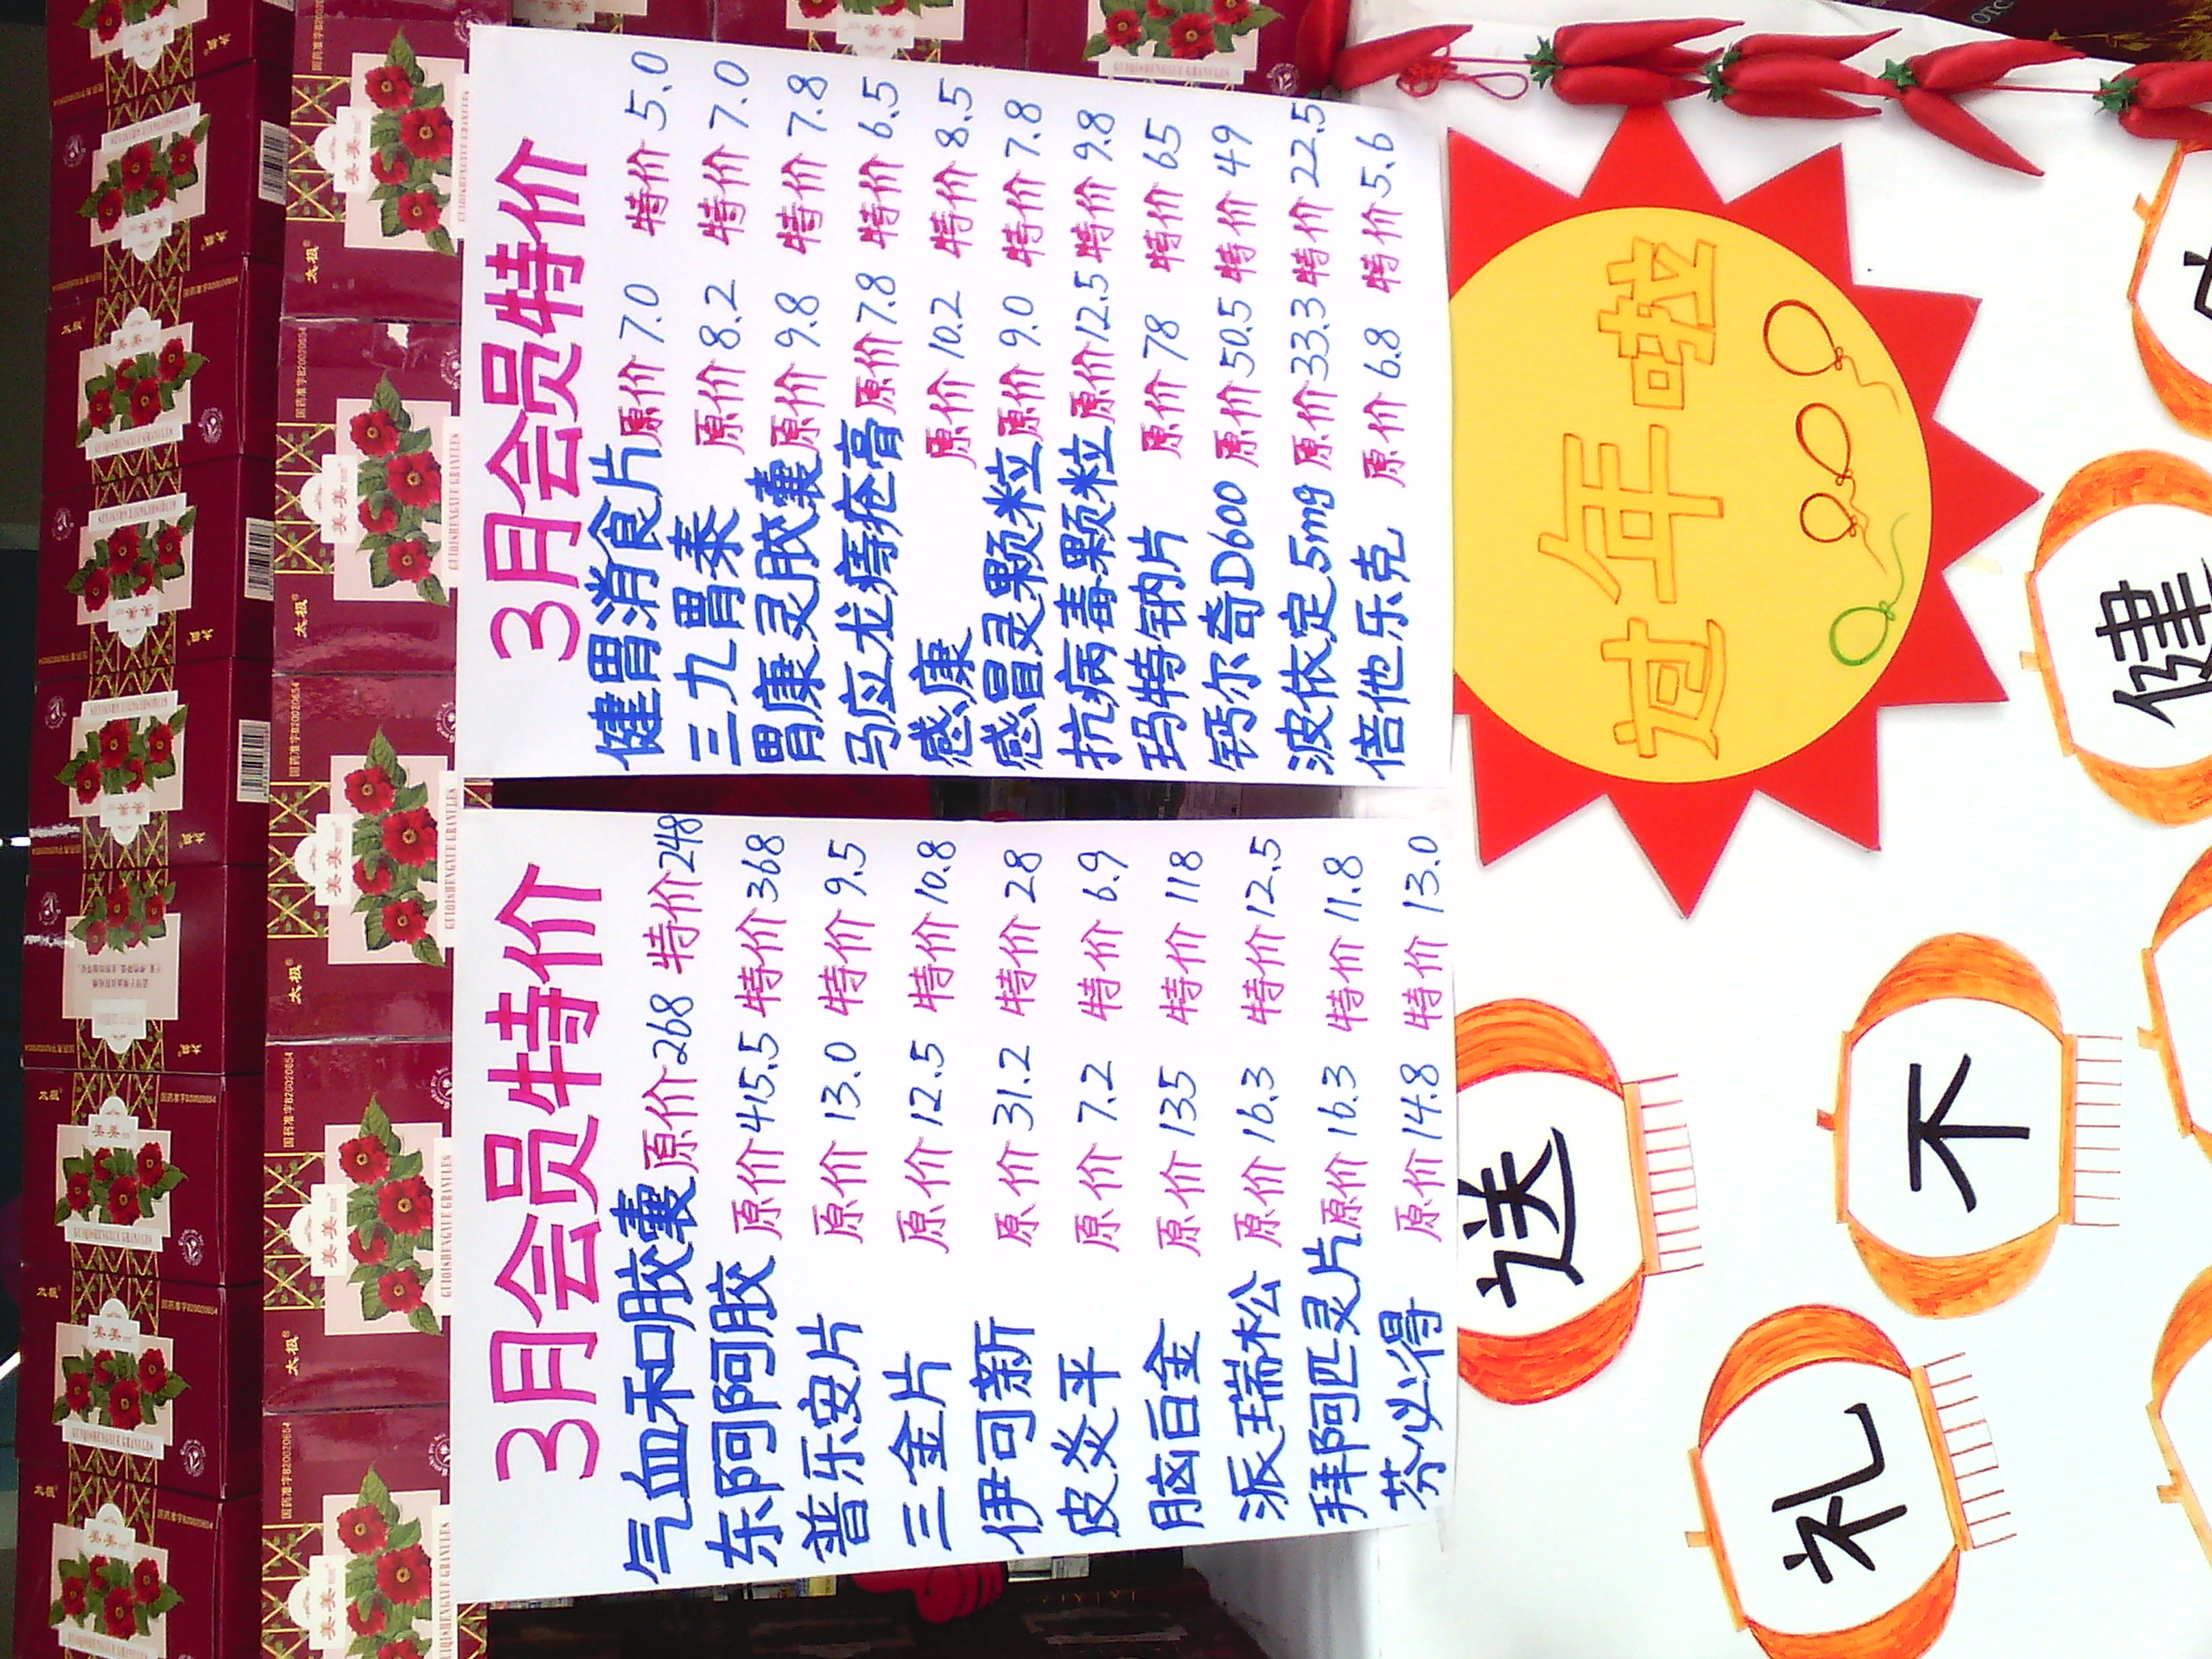 3月会员特价
气血和胶囊 原价268 特价248
东阿阿胶 原价415.5 特价368
普乐安片 原价 13.0 特价 9.5
三金片 原价 12.5 特价10.8
伊可新 原价 31.2 特价 28
皮炎平 原价 7.2 特价 6.9
脑白金 原价 135 特价 118
派瑞松 原价 16.3 特价12.5
拜阿匹灵片 原价 16.3 特价 11.8
芬必得 原价 14.8 特价 13.0
3月会员特价
健胃消食片 原价 7.0 特价 5.0
三九胃泰 原价 8.2 特价 7.0
胃康灵胶囊 原价 9.8 特价 7.8
马应龙痔疮膏 原价7.8 特价 6.5
感康 原价 10.2 特价 8.5
感冒灵颗粒 原价 9.0 特价 7.8
抗病毒颗粒 原价12.5 特价 9.8
玛特纳片 原价 78 特价 65
钙尔奇D600 原价 50.5 特价 49
波依定5mg 原价33.3 特价 22.5
倍他乐克 原价 6.8 特价 5.6
过年啦
送
礼
不
健
太极
国药准字B20020654
GUIQISHENGXUE GRANULES
OTC